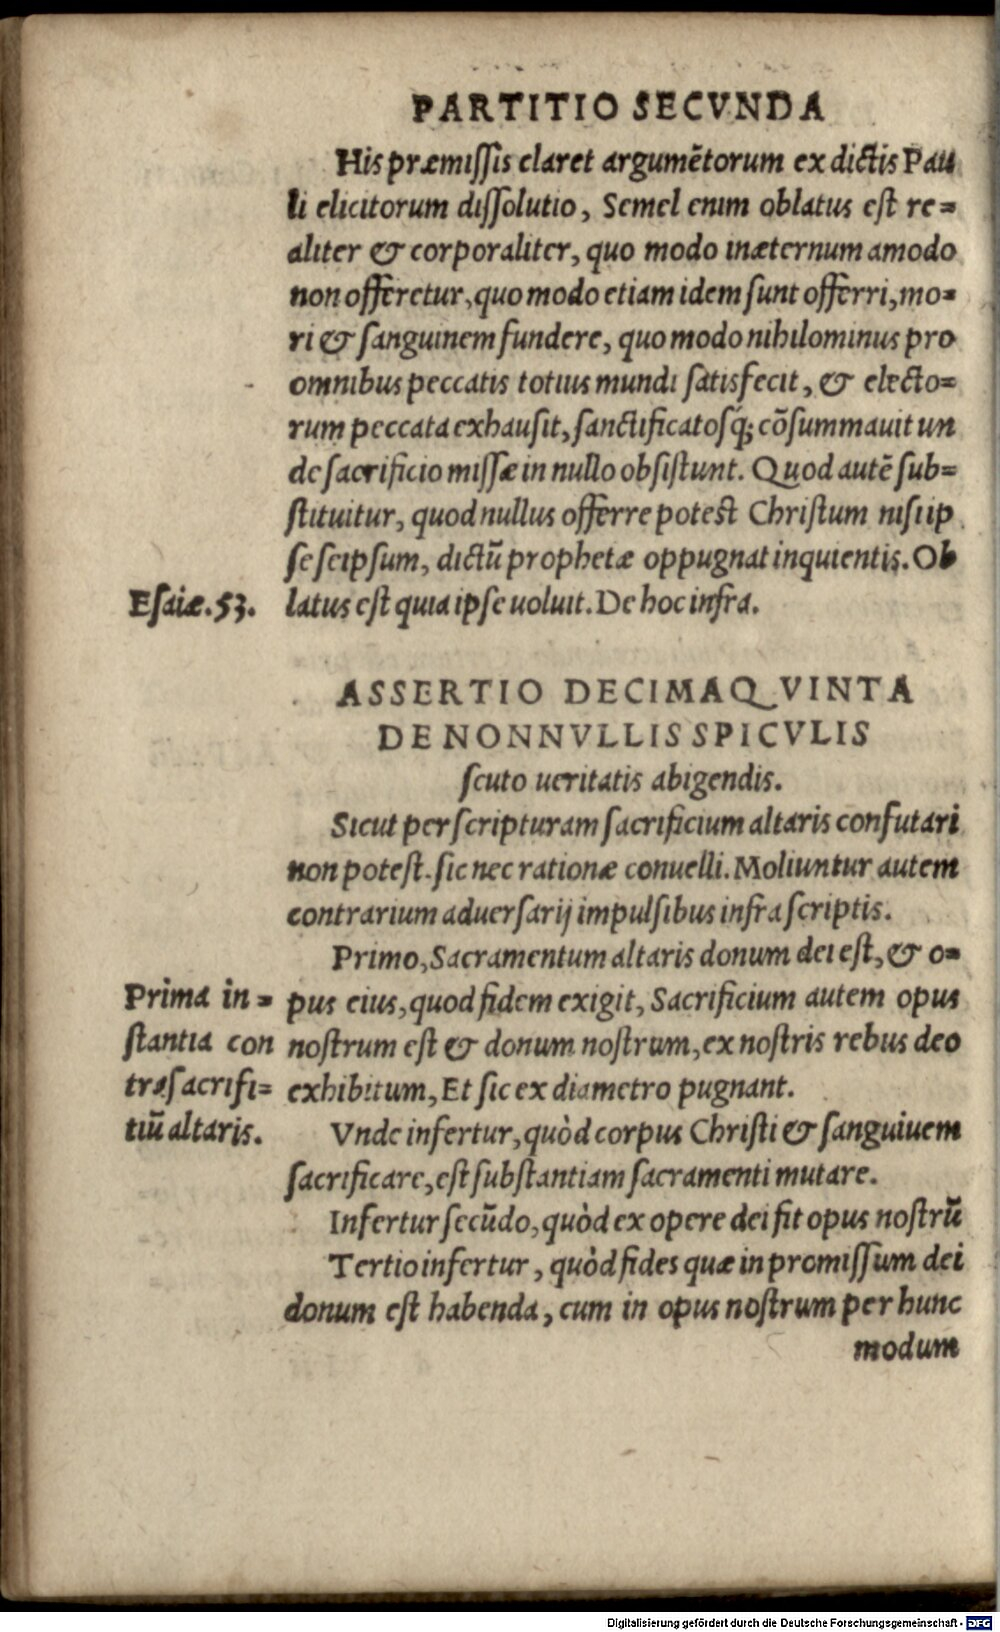 PARTITIO SECVNDA
His præmiſſis claret argumẽtorum ex dictis Pau
li elicitorum diſſolutio, Semel enim oblatus eſt re=
aliter & corporaliter, quo modo inæternum amodo
non offeretur, quo modo etiam idem ſunt offerri, mo=
ri & ſanguinem fundere, quo modo nihilominus pro
omnibus peccatis totius mundi ſatisfecit, & electo=
rum peccata exhauſit, ſanctificatosq́; cõſummauit un
de ſacrificio miſſæ in nullo obſiſtunt. Quod autẽ ſub=
ſtituitur, quod nullus offerre poteſt Chriſtum niſi ip
ſe ſeipſum, dictũ prophetæ oppugnat inquientis. Ob
Eſaiæ. 53.
latus eſt quia ipſe uoluit. De hoc infra.
ASSERTIO DECIMAQVINTA
DE NONNVLLIS SPICVLIS
ſcuto ueritatis abigendis.
Sicut per ſcripturam ſacrificium altaris confutari
non poteſt. ſic nec rationæ conuelli. Moliuntur autem
contrarium aduerſarij impulſibus infra ſcriptis.
Primo, Sacramentum altaris donum dei eſt, & o=
Prima in=
ſtantia con
tra ſacrifi=
tiũ altaris.
pus eius, quod fidem exigit, Sacrificium autem opus
noſtrum eſt & donum noſtrum, ex noſtris rebus deo
exhibitum, Et ſic ex diametro pugnant.
Vnde infertur, quòd corpus Chriſti & ſanguiuem
ſacrificare, eſt ſubſtantiam ſacramenti mutare.
Infertur ſecũdo, quòd ex opere dei fit opus noſtrũ
Tertio infertur, quòd fides quæ in promiſſum dei
donum eſt habenda, cum in opus noſtrum per hunc
modum
Digitalisierung gefördert durch die Deutsche Forschungsgemeinschaft - DFG